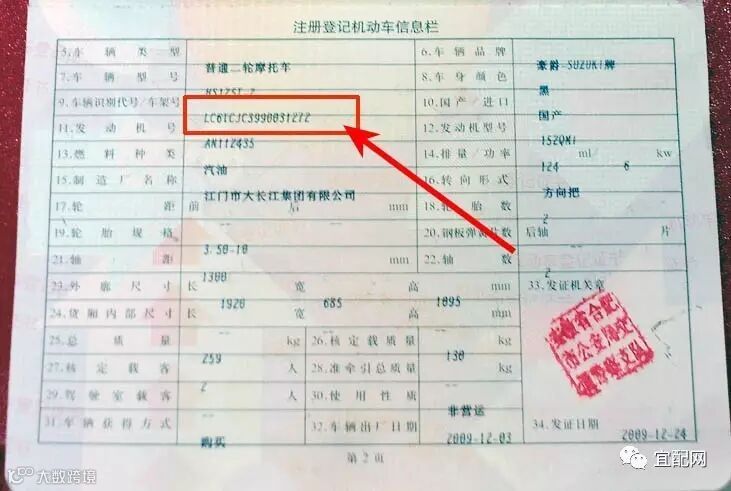 注册登记机动车信息栏
5.车辆类型 普通二轮摩托车 6.车辆品牌 豪爵-SUZUKI牌
7.车辆型号 HS125T-2 8.车身颜色 黑
9.车辆识别代号/车架号 LC6TCJC3990031272 10.国产/进口 国产
11.发动机号 AN112435 12.发动机型号 152QMI
13.燃料种类 汽油 14.排量/功率 124 ml/ 6 kw
15.制造厂名称 江门市大长江集团有限公司 16.转向形式 方向把
17.轮距 前 后 mm 18.轮胎数 2
19.轮胎规格 3.50-10 20.钢板弹簧片数 后轴 -- 片
21.轴距 1300 mm 22.轴数 2
23.外廓尺寸 长 1920 宽 685 高 1095 mm 33.发证机关章
24.货厢内部尺寸 长 -- 宽 高 mm
25.总质量 259 kg 26.核定载质量 130 kg
27.核定载客 2 人 28.准牵引总质量 -- kg
29.驾驶室载客 -- 人 30.使用性质 非营运
31.车辆获得方式 购买 32.车辆出厂日期 2009-12-03 34.发证日期 2009-12-24
第2页
大数跨境
宜配网